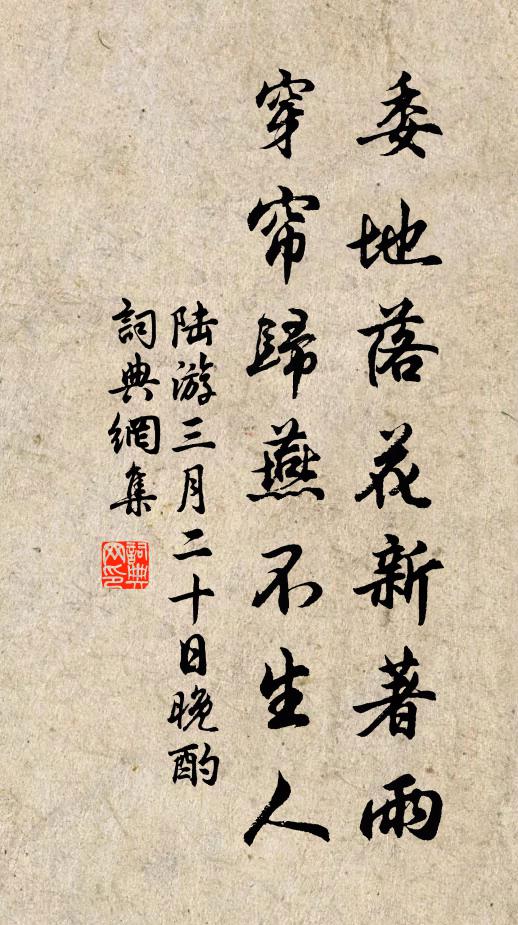 委地落花新著雨
穿帘歸燕不生人
陆游三月二十日晚酌
詞典網集
詞典網印